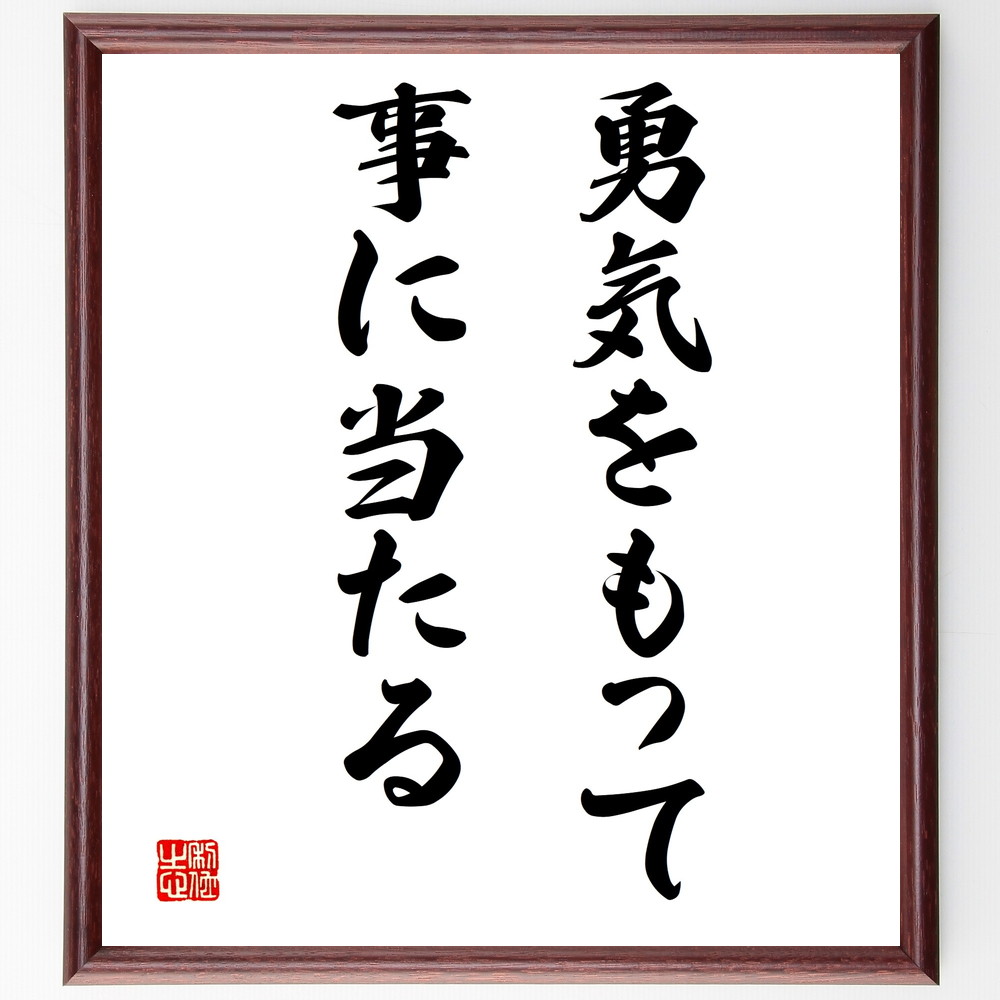 勇気をもって
事に当たる